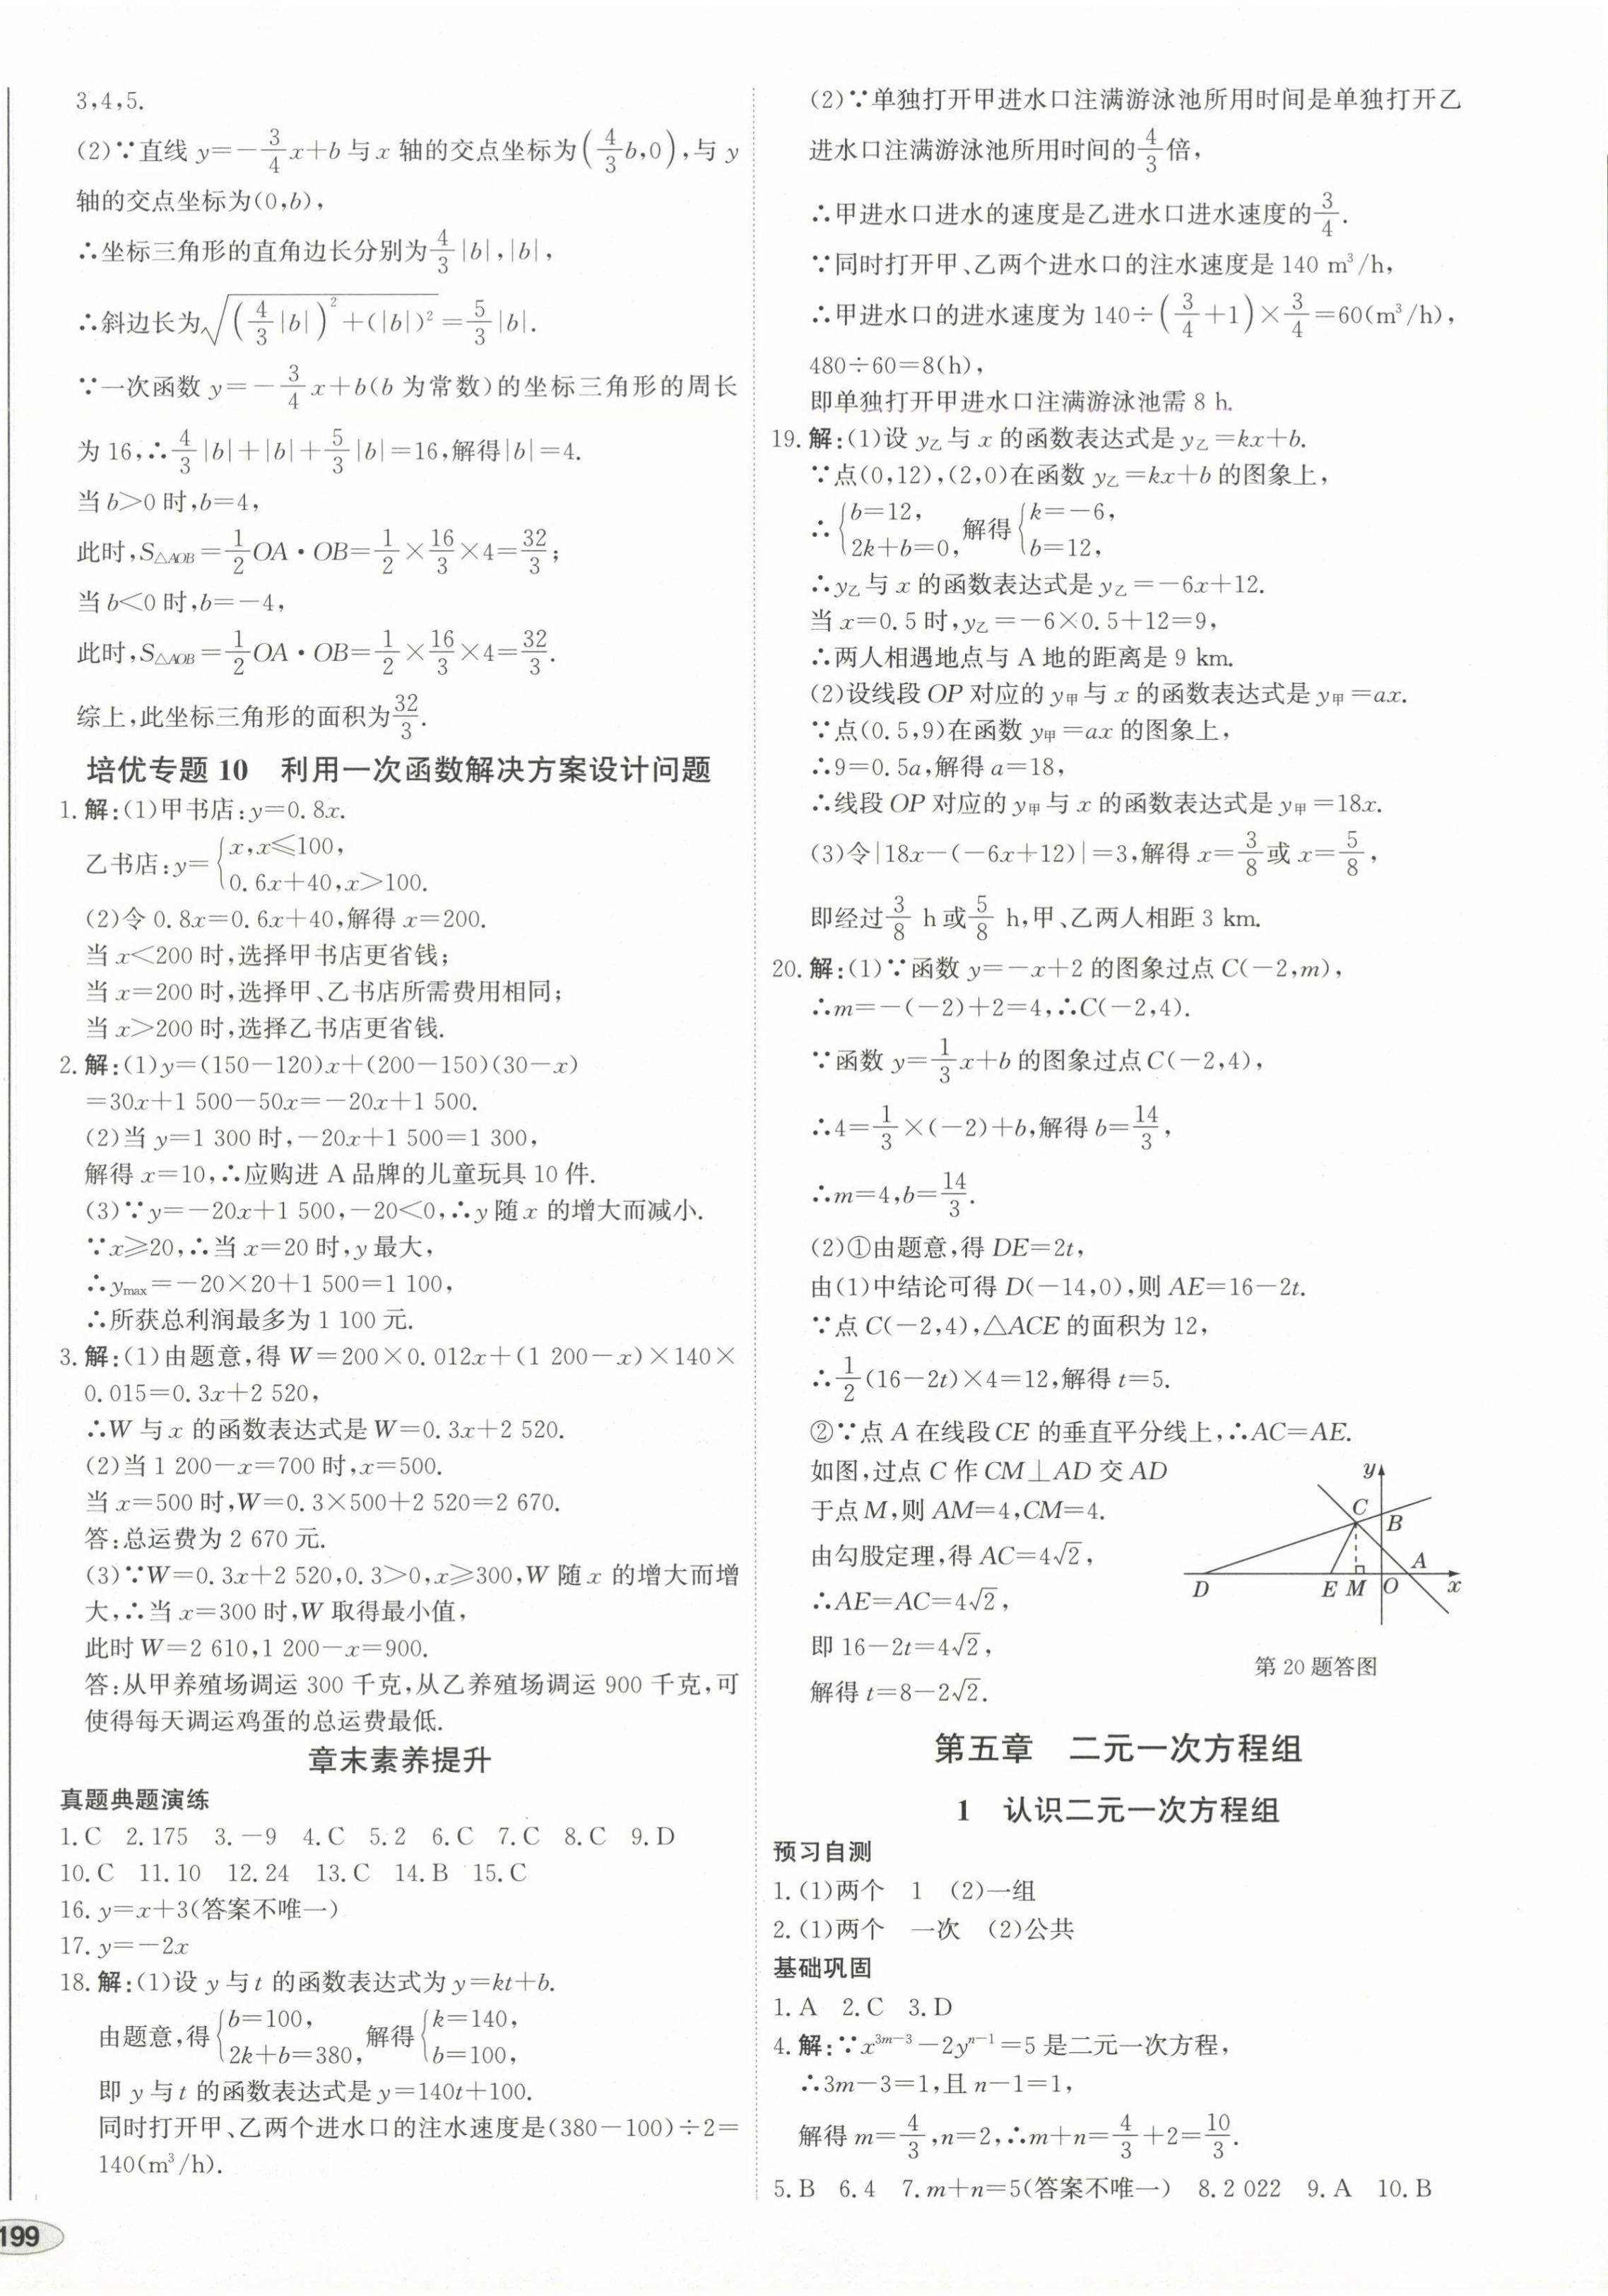 3,4,5.
(2)∵直线 y=-3/4x+b 与 x 轴的交点坐标为(4/3b,0),与 y
轴的交点坐标为(0,b),
∴坐标三角形的直角边长分别为4/3|b|,|b|,
∴斜边长为√((4/3|b|)²+(|b|)²)=5/3|b|.
∵一次函数 y=-3/4x+b(b 为常数)的坐标三角形的周长
为 16,∴4/3|b|+|b|+5/3|b|=16,解得|b|=4.
当 b>0 时,b=4,
此时,S△AOB=1/2OA·OB=1/2×16/3×4=32/3;
当 b<0 时,b=-4,
此时,S△AOB=1/2OA·OB=1/2×16/3×4=32/3.
综上,此坐标三角形的面积为32/3.
培优专题 10 利用一次函数解决方案设计问题
1. 解:(1)甲书店:y=0.8x.
乙书店:y={x,x≤100,
0.6x+40,x>100.
(2)令 0.8x=0.6x+40,解得 x=200.
当 x<200 时,选择甲书店更省钱;
当 x=200 时,选择甲、乙书店所需费用相同;
当 x>200 时,选择乙书店更省钱.
2. 解:(1)y=(150-120)x+(200-150)(30-x)
=30x+1 500-50x=-20x+1 500.
(2)当 y=1 300 时,-20x+1 500=1 300,
解得 x=10,∴应购进 A 品牌的儿童玩具 10 件.
(3)∵y=-20x+1 500,-20<0,∴y 随 x 的增大而减小.
∵x≥20,∴当 x=20 时,y 最大,
∴ymax=-20×20+1 500=1 100,
∴所获总利润最多为 1 100 元.
3. 解:(1)由题意,得 W=200×0.012x+(1 200-x)×140×
0.015=0.3x+2 520,
∴W 与 x 的函数表达式是 W=0.3x+2 520.
(2)当 1 200-x=700 时,x=500.
当 x=500 时,W=0.3×500+2 520=2 670.
答:总运费为 2 670 元.
(3)∵W=0.3x+2 520,0.3>0,x≥300,W 随 x 的增大而增
大,∴当 x=300 时,W 取得最小值,
此时 W=2 610,1 200-x=900.
答:从甲养殖场调运 300 千克,从乙养殖场调运 900 千克,可
使得每天调运鸡蛋的总运费最低.
章末素养提升
真题典题演练
1. C 2. 175 3. -9 4. C 5. 2 6. C 7. C 8. C 9. D
10. C 11. 10 12. 24 13. C 14. B 15. C
16. y=x+3(答案不唯一)
17. y=-2x
18. 解:(1)设 y 与 t 的函数表达式为 y=kt+b.
由题意,得{b=100, 2k+b=380, 解得{k=140, b=100,
即 y 与 t 的函数表达式是 y=140t+100.
同时打开甲、乙两个进水口的注水速度是(380-100)÷2=
140(m³/h).
199
(2)∵单独打开甲进水口注满游泳池所用时间是单独打开乙
进水口注满游泳池所用时间的4/3倍,
∴甲进水口进水的速度是乙进水口进水速度的3/4.
∵同时打开甲、乙两个进水口的注水速度是 140 m³/h,
∴甲进水口的进水速度为 140÷(3/4+1)×3/4=60(m³/h),
480÷60=8(h),
即单独打开甲进水口注满游泳池需 8 h.
19. 解:(1)设 y乙与 x 的函数表达式是 y乙=kx+b.
∵点(0,12),(2,0)在函数 y乙=kx+b 的图象上,
∴{b=12, 2k+b=0, 解得{k=-6, b=12,
∴y乙与 x 的函数表达式是 y乙=-6x+12.
当 x=0.5 时,y乙=-6×0.5+12=9,
∴两人相遇地点与 A 地的距离是 9 km.
(2)设线段 OP 对应的 y甲与 x 的函数表达式是 y甲=ax.
∵点(0.5,9)在函数 y甲=ax 的图象上,
∴9=0.5a,解得 a=18,
∴线段 OP 对应的 y甲与 x 的函数表达式是 y甲=18x.
(3)令|18x-(-6x+12)|=3,解得 x=3/8或 x=5/8,
即经过3/8 h 或5/8 h,甲、乙两人相距 3 km.
20. 解:(1)∵函数 y=-x+2 的图象过点 C(-2,m),
∴m=-(-2)+2=4,∴C(-2,4).
∵函数 y=1/3x+b 的图象过点 C(-2,4),
∴4=1/3×(-2)+b,解得 b=14/3,
∴m=4,b=14/3.
(2)①由题意,得 DE=2t,
由(1)中结论可得 D(-14,0),则 AE=16-2t.
∵点 C(-2,4),△ACE 的面积为 12,
∴1/2(16-2t)×4=12,解得 t=5.
②∵点 A 在线段 CE 的垂直平分线上,∴AC=AE.
如图,过点 C 作 CM⊥AD 交 AD
于点 M,则 AM=4,CM=4.
由勾股定理,得 AC=4√2,
∴AE=AC=4√2,
即 16-2t=4√2,
解得 t=8-2√2.
y
C
B
A
D E M O x
第 20 题答图
第五章 二元一次方程组
1 认识二元一次方程组
预习自测
1. (1)两个 1 (2)一组
2. (1)两个 一次 (2)公共
基础巩固
1. A 2. C 3. D
4. 解:∵x^(3m-3)-2y^(n-1)=5 是二元一次方程,
∴3m-3=1,且 n-1=1,
解得 m=4/3,n=2,∴m+n=4/3+2=10/3.
5. B 6. 4 7. m+n=5(答案不唯一) 8. 2 022 9. A 10. B